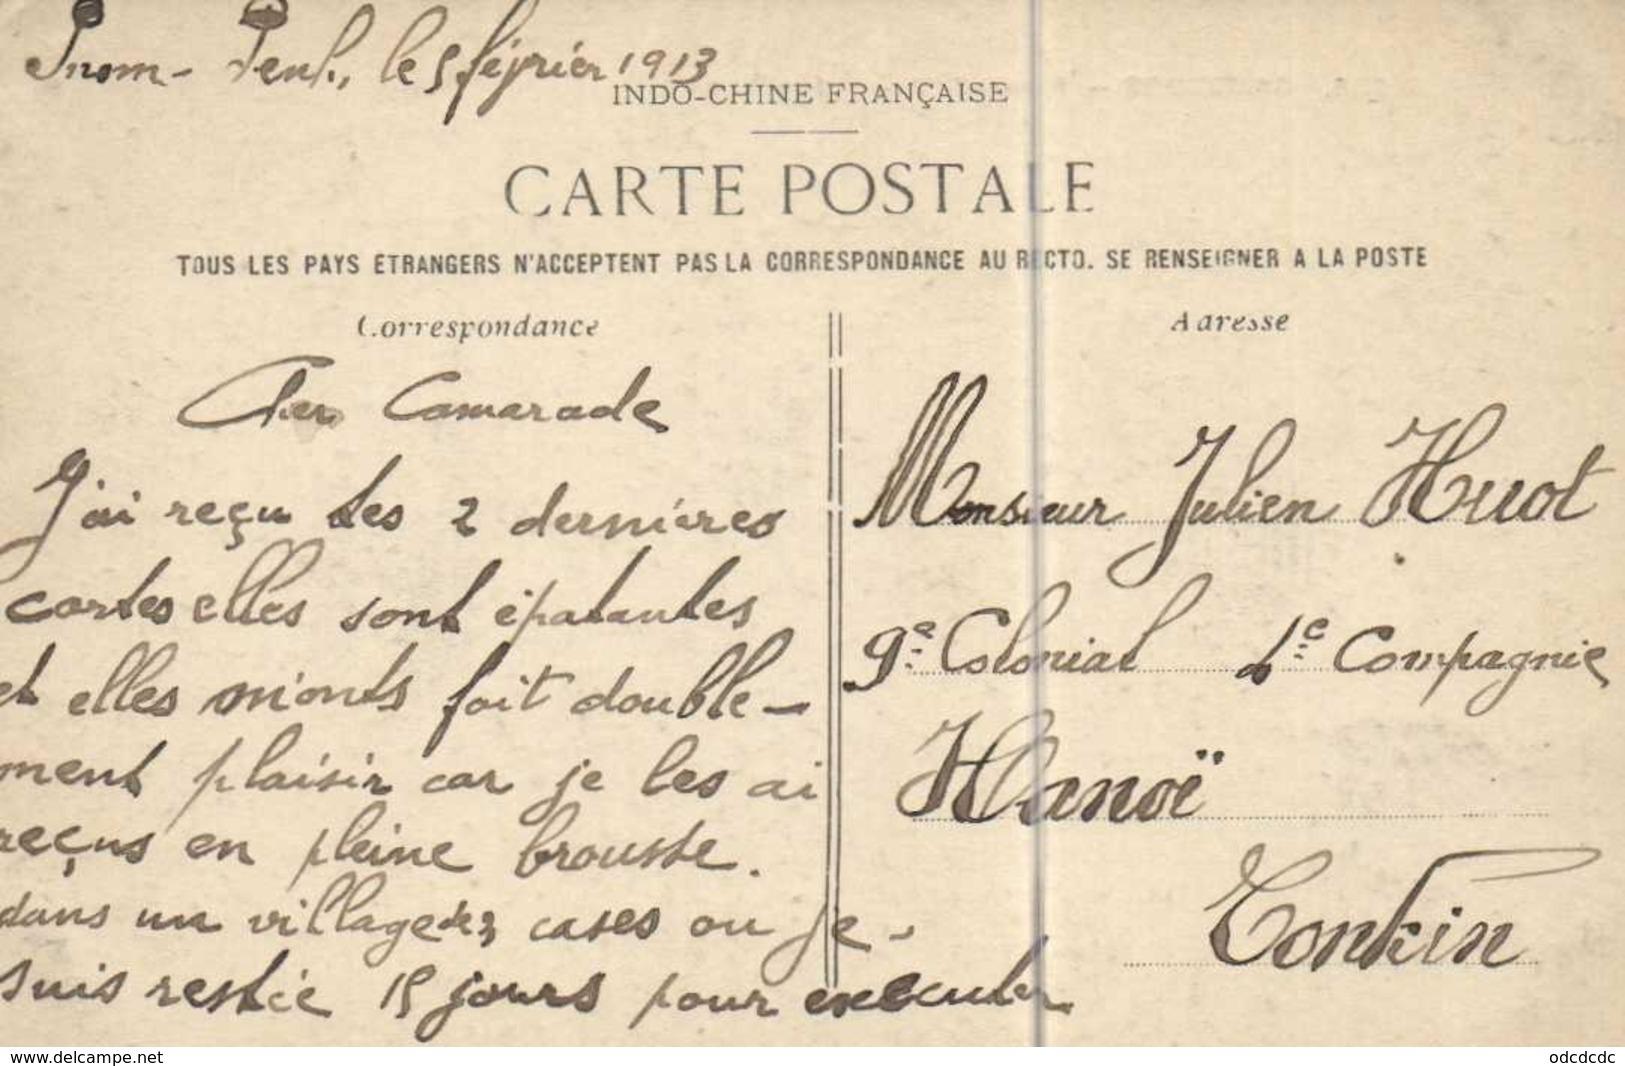 Pnom-Penh, le 5 février 1913
INDO-CHINE FRANÇAISE
CARTE POSTALE
TOUS LES PAYS ETRANGERS N'ACCEPTENT PAS LA CORRESPONDANCE AU RECTO. SE RENSEIGNER A LA POSTE
Correspondance
Cher Camarade
J'ai reçu tes 2 dernières
cartes elles sont épatantes
et elles m'onts fait double-
ment plaisir car je les ai
reçus en pleine brousse.
dans un village de 3 cases ou je
suis restée 15 jours pour executer
Adresse
Monsieur Julien Huot
9e Colonial 1e Compagnie
Hanoï
Tonkin
www.delcampe.net
odcdcdc